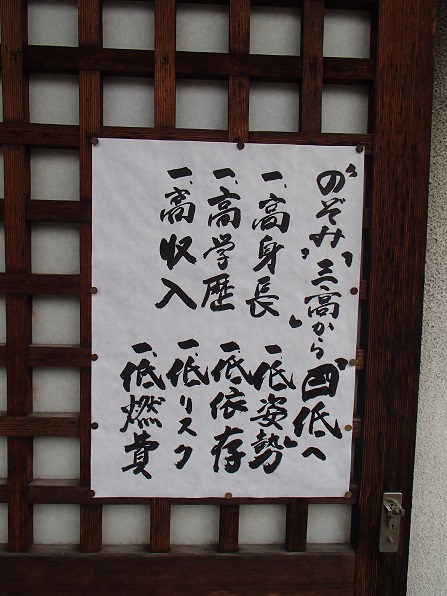 "のぞみ"「三高」から『四低』へ
一、高身長
一、高学歴
一、高収入
一、低姿勢
一、低依存
一、低リスク
一、低燃費